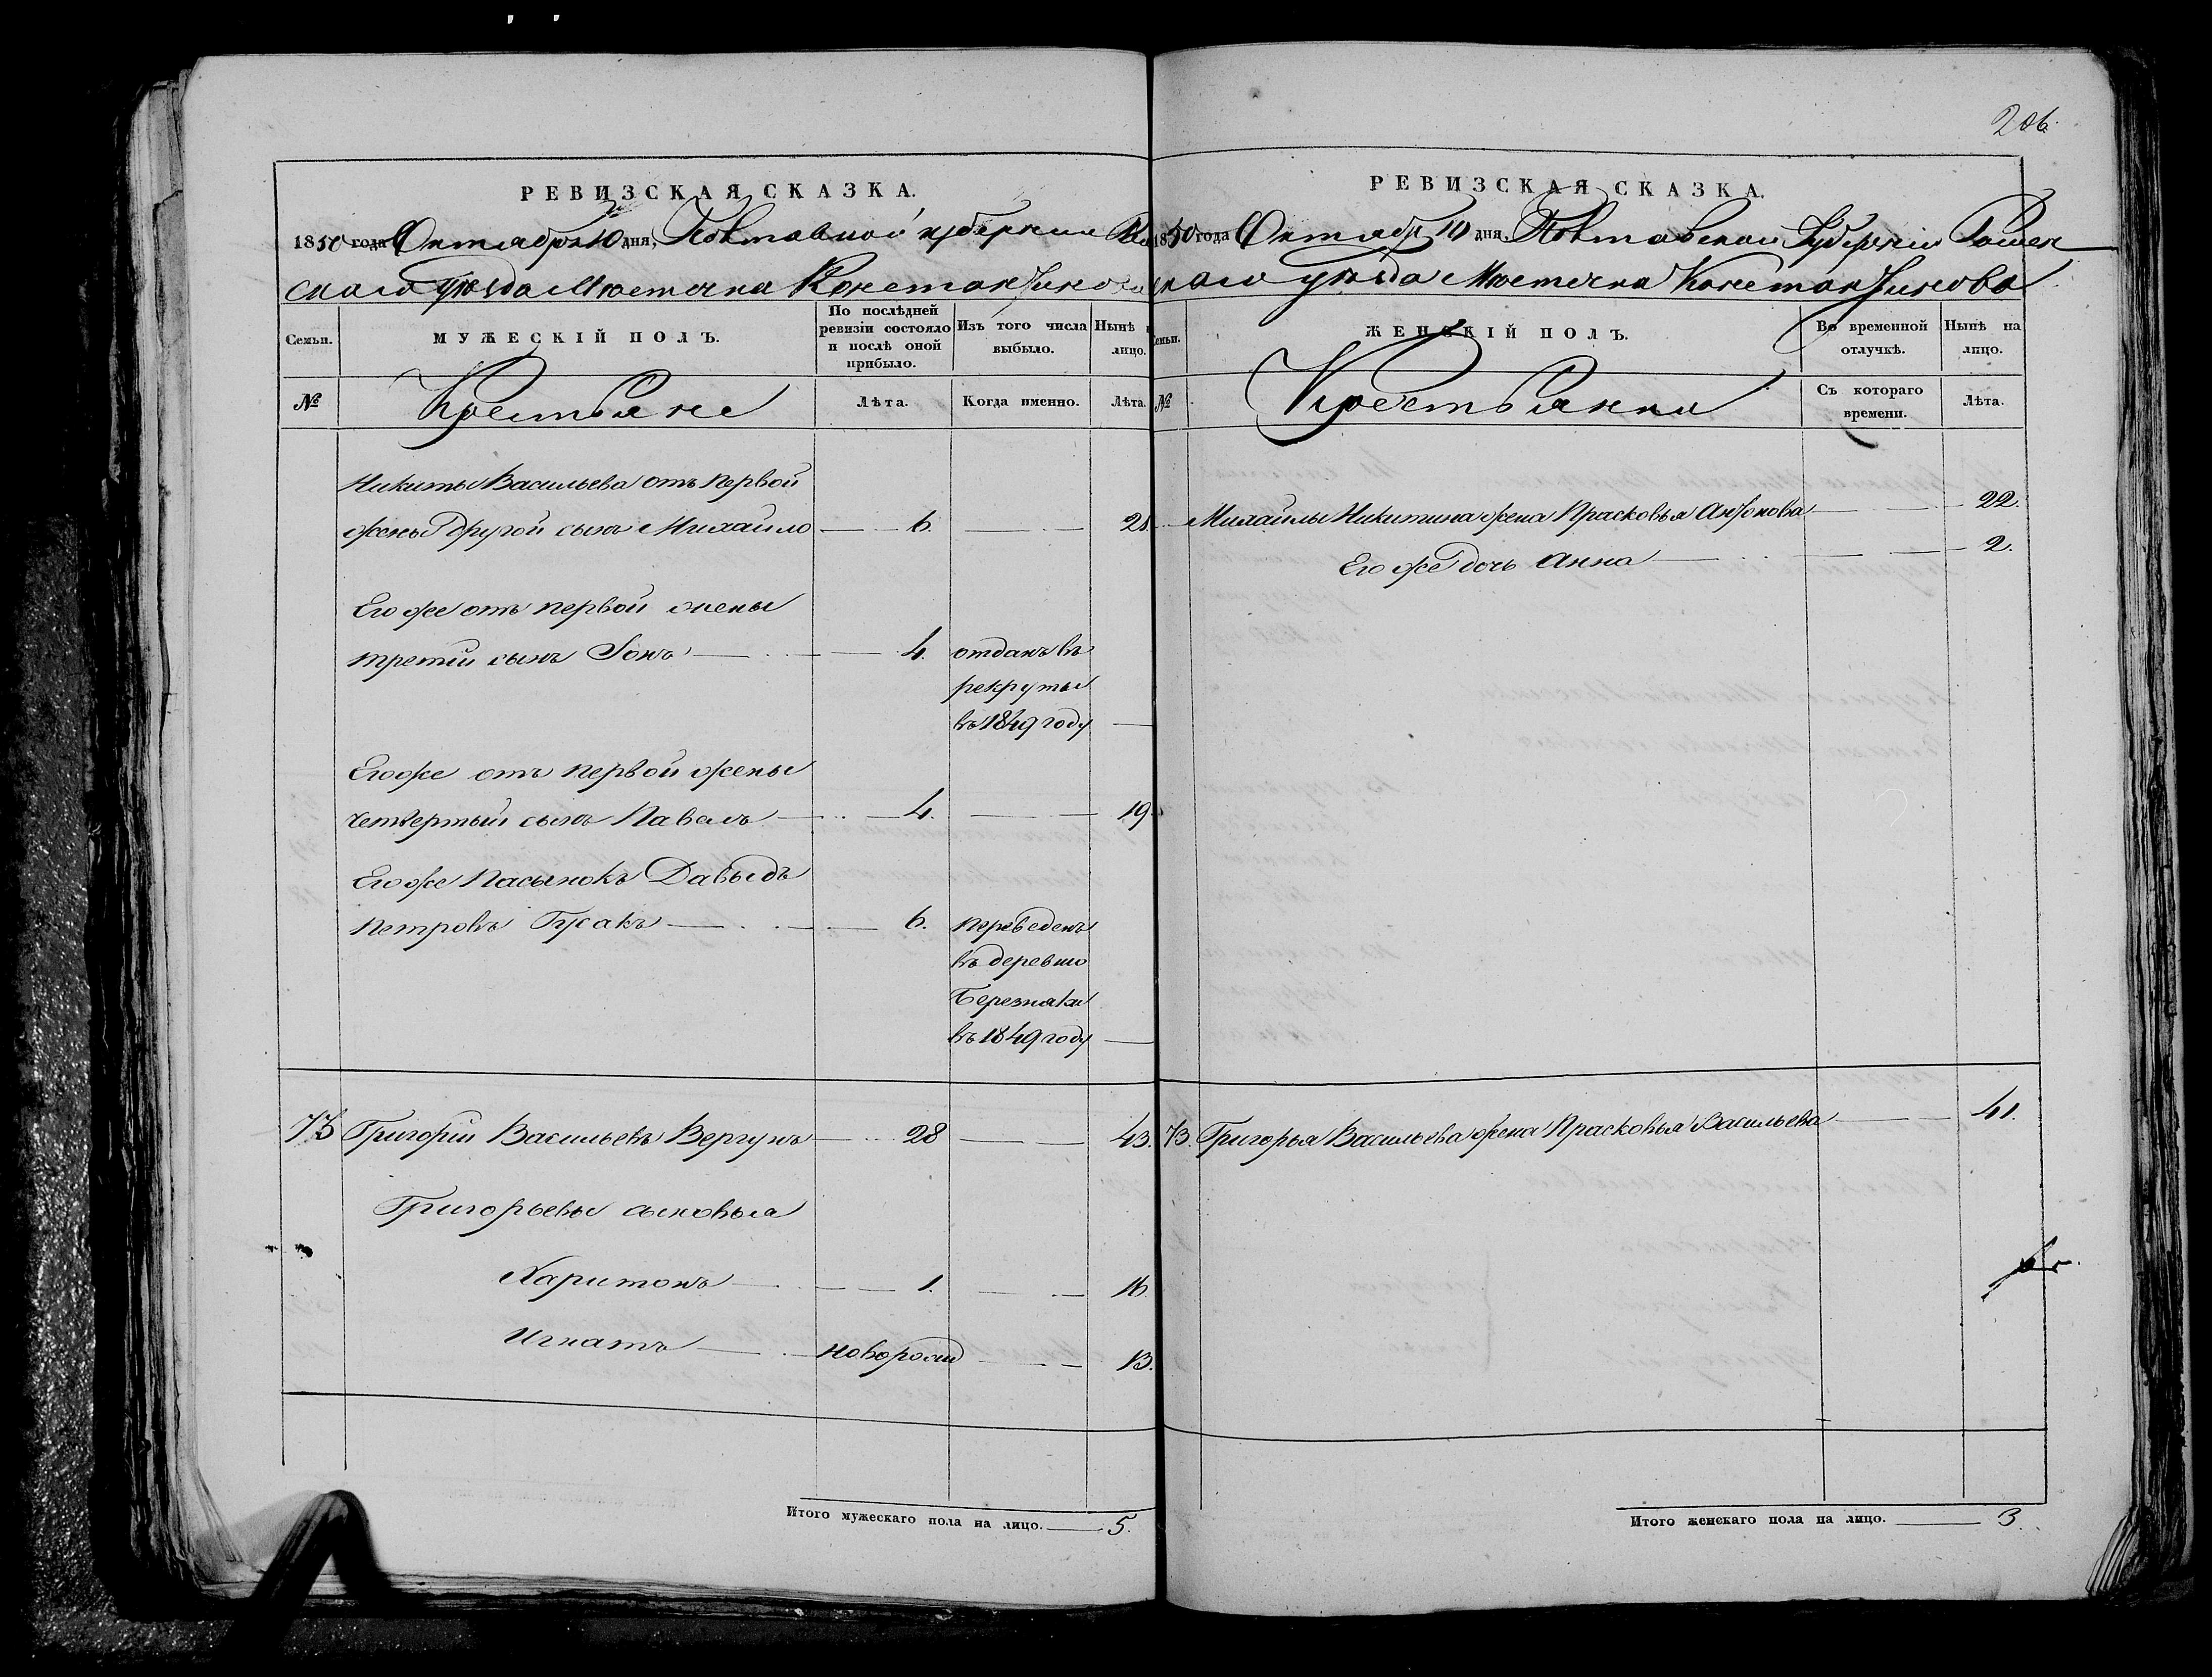 206.
РЕВИЗСКАЯ СКАЗКА.
1850 года Октября 10 дня, Полтавской губернии
скаго уѣзда Мѣстечка Константинова
Семьи. МУЖЕСКІЙ ПОЛЪ. По послѣдней ревизіи состояло и послѣ оной прибыло. Изъ того числа выбыло. Нынѣ лицо.
№ Крестьяне Лѣта. Когда именно. Лѣта.
Никиты Васильева отъ первой
жены другой сынъ Михайло 6. 21.
Его же отъ первой жены
третій сынъ Іонъ 4. отданъ въ
рекруты
въ 1849 году
Его же отъ первой жены
четвертый сынъ Павелъ 4. 19.
Его же Пасынокъ Давыдъ
Петровъ Гусакъ 6. переведенъ
въ деревню
Березняки
въ 1849 году
73 Григорій Васильевъ Вергунъ 28 43.
Григорьевы сыновья
Харитонъ 1. 16.
Игнатъ новорожд 13.
Итого мужескаго пола на лицо. 5.
РЕВИЗСКАЯ СКАЗКА.
1850 года Октября 10 дня. Полтавской Губерніи Ромен
скаго уѣзда Мѣстечка Константинова
Семьи. ЖЕНСКІЙ ПОЛЪ. Во временной отлучкѣ. Нынѣ на лицо.
№ Крестьянки Съ котораго времени. Лѣта.
Михайлы Никитина жена Прасковья Антонова 22.
Его же дочь Анна 2.
73. Григорья Васильева жена Прасковья Васильева 41.
Итого женскаго пола на лицо. 3.